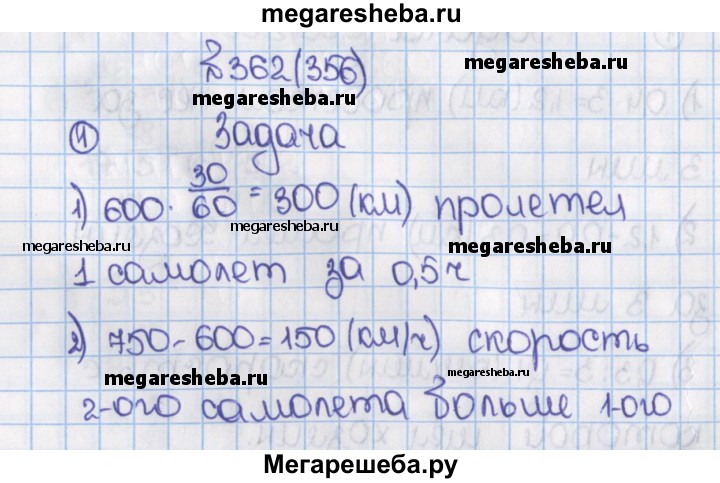 megaresheba.ru
№362(356)
megaresheba.ru
megaresheba.ru
① Задача
1) 600 · 30/60 = 300 (км) пролетел
megaresheba.ru
megaresheba.ru
1 самолет за 0,5ч
2) 750 - 600 = 150 (км/ч) скорость
megaresheba.ru
megaresheba.ru
2-ого самолета больше 1-ого
Мегарешеба.ру